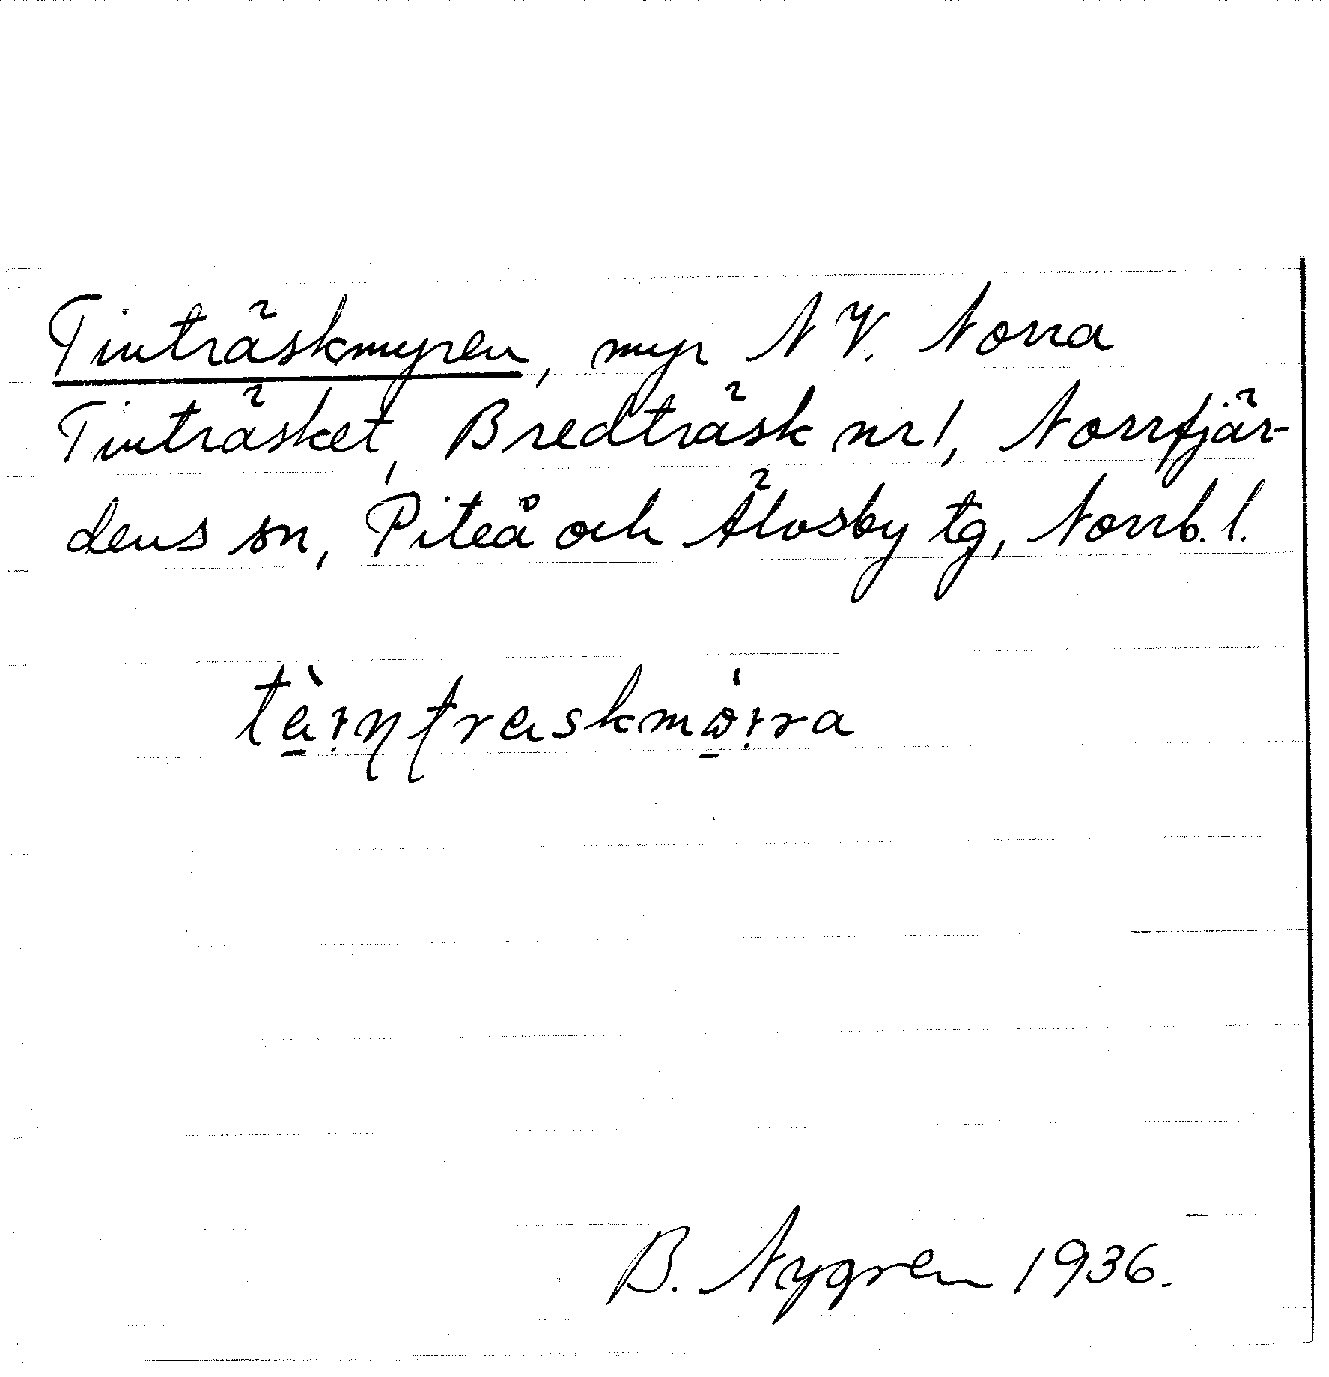 Tinträskmyren, myr NV. Norra
Tinträsket, Bredträsk nr 1, Norrfjär-
dens sn, Piteå och Älvsby tg, Norrb. l.
B. Nygren 1936.